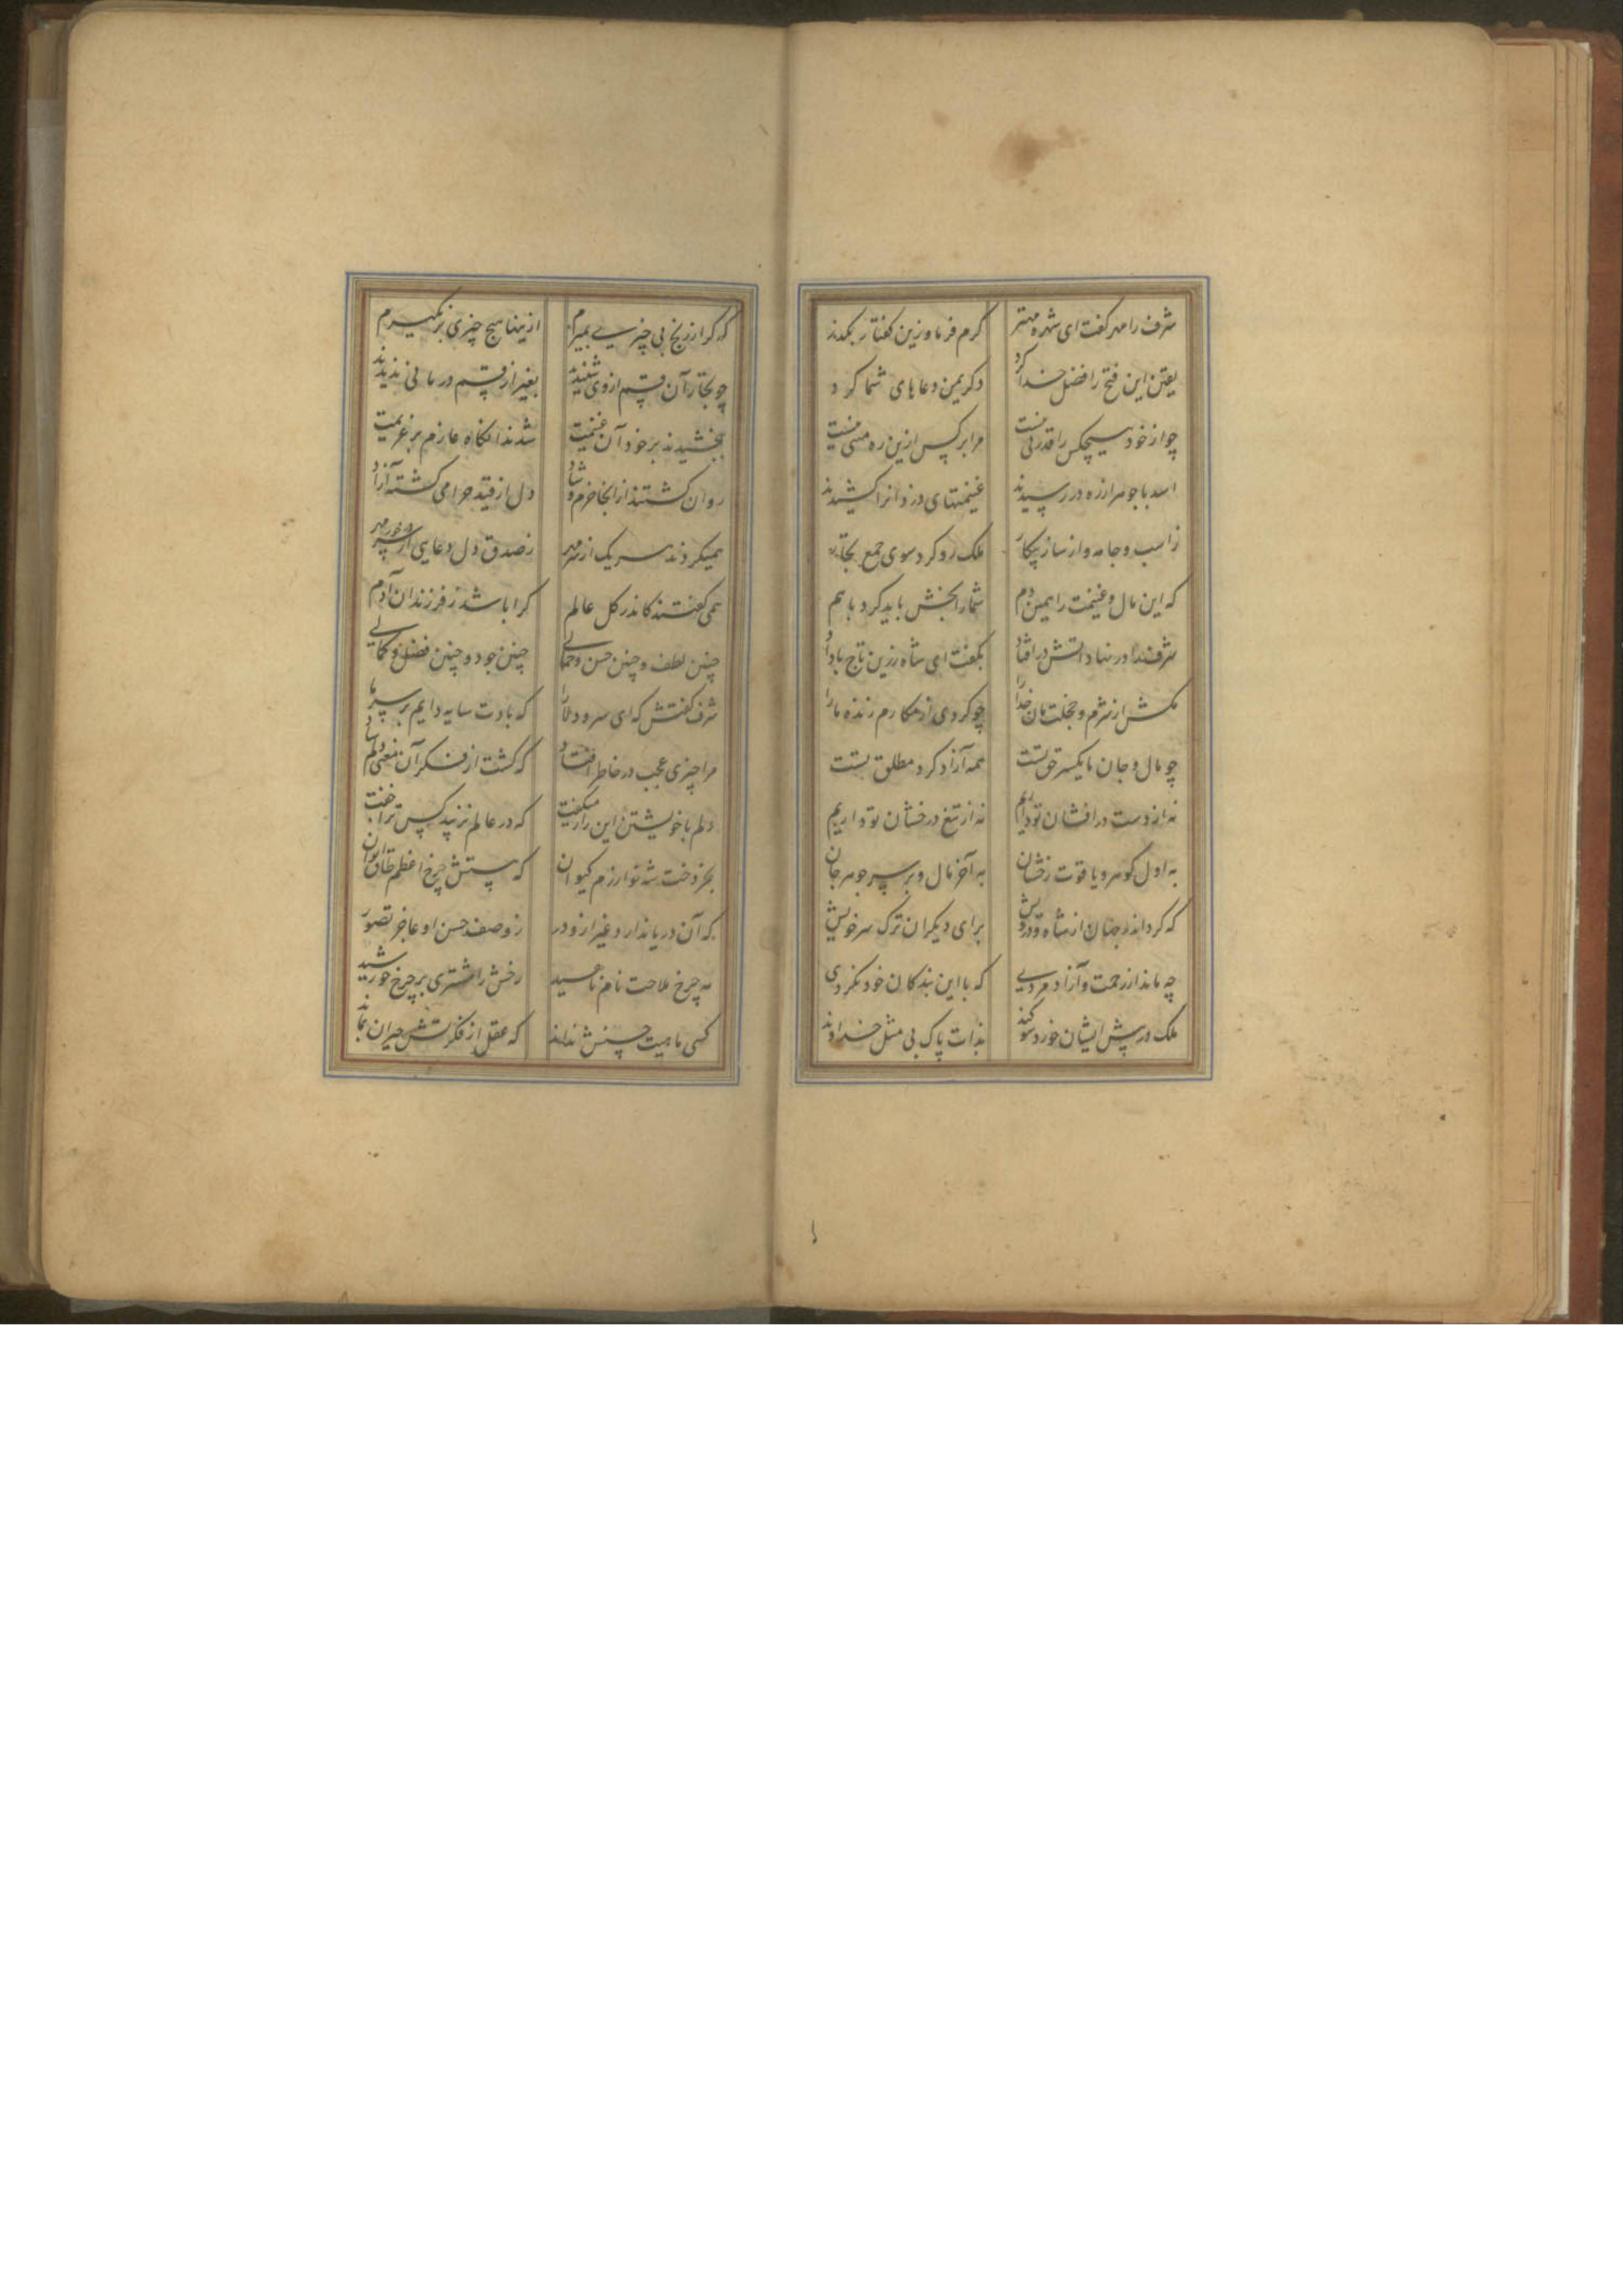 شرف را مهر گفت ای شهره مهتر کرم فرما و زین گفتار بگذر
یقین این فتح را فضل خدا کرد دگر یمن دعاهای شما کرد
چو از خود هیچکس را قدرتی نیست مرا بر کس ازین ره منتی نیست
اسد با جوهر از ره در رسیدند غنیمتهای دزدانرا کشیدند
ز اسب و جامه و از ساز پیکار ملک رو کرد سوی جمع تجار
که این مال و غنیمت را همین دم شما را بخش باید کرد با هم
شرف در پا فتاد بگفت ای شاه زرین تاج با داد
مکش از شرم و خجلت مان خدا را چو کردی از مکارم زنده ما را
چو مال و جان ما یکسر حق تست همه آزاد کرد مطلق تست
نه از دست درافشان تو داریم نه از تیغ درخشان تو داریم
به اول گوهر و یاقوت رخشان به آخر مال و بر سر جوهر جان
که کرد اندر جهان از شاه و درویش برای دیگران ترک سر خویش
چه ماند از رحمت و آزاد مردی که با این بندکان خود نکردی
ملک در پیش ایشان خورد سوکند بذات پاک بی مثل خداوند
که کر از رنج بی چیزی بمیرم ازینها هیچ چیزی بر نگیرم
چو تجار آن قسم از وی شنیدند بغیر از قسم درمانی ندیدند
ببخشیدند بر خود آن غنیمت شدند آنگاه عازم بر عزیمت
روان کشتند از آنجا خرم و شاد دل از قید حرامی کشته آزاد
همیکردند هر یک از سر مهر ز صدق دل دعایی از پی مهر
همی گفتند کاندر کل عالم کرا باشد ز فرزندان آدم
چنین لطف و چنین حسن و جمالی چنین جود و چنین فضل و کمالی
شرف گفتش که ای سرو دلارا که بادت سایه دایم بر سر ما
مرا چیزی عجب در خاطر افتاد که گشت از فکر آن معنی دلم شاد
دلم با خویشتن این راز میگفت که در عالم نزیبد کس ترا جفت
بجز دخت شه خوارزم کیوان که پستش چرخ اعظم طاق ایوان
که آن دریا ندارد غیر ازو در ز وصف حسن او عاجز تصور
مه چرخ ملاحت نام ناهید رخش را مشتری بر چرخ خورشید
کسی ماهیت حسنش نداند که عقل از فکرتش حیران بماند